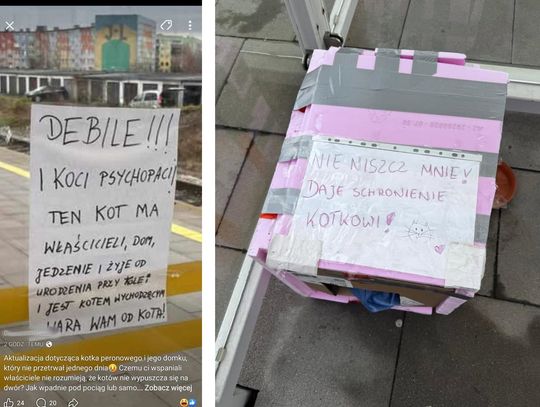 DEBILE!!!
I KOCI PSYCHOPACI
TEN KOT MA
WŁAŚCICIELI, DOM,
JEDZENIE I ŻYJE OD
URODZENIA PRZY KOLEI
I JEST KOTEM WYCHODZĄCYM
WARA WAM OD KOTA!
2 GODZ. TEMU
Aktualizacja dotycząca kotka peronowego i jego domku,
który nie przetrwał jednego dnia Czemu ci wspaniali
właściciele nie rozumieją, że kotów nie wypuszcza się na
dwór? Jak wpadnie pod pociąg lub samo... Zobacz więcej
24
20
NIE NISZCZ MNIE!
DAJE SCHRONIENIE
KOTKOWI!